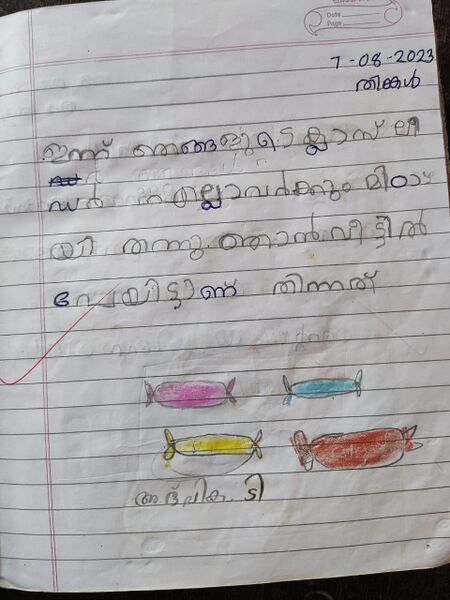 Date
Page
7-08-2023
തിങ്കൾ
ഇന്ന് ഞങ്ങളുടെ ക്ലാസ് ലീ
ഡർ എല്ലാവർക്കും മിഠാ
യി തന്നു ഞാൻ വീട്ടിൽ
പോയിട്ടാണ് തിന്നത്
അദ്വിക. ടി